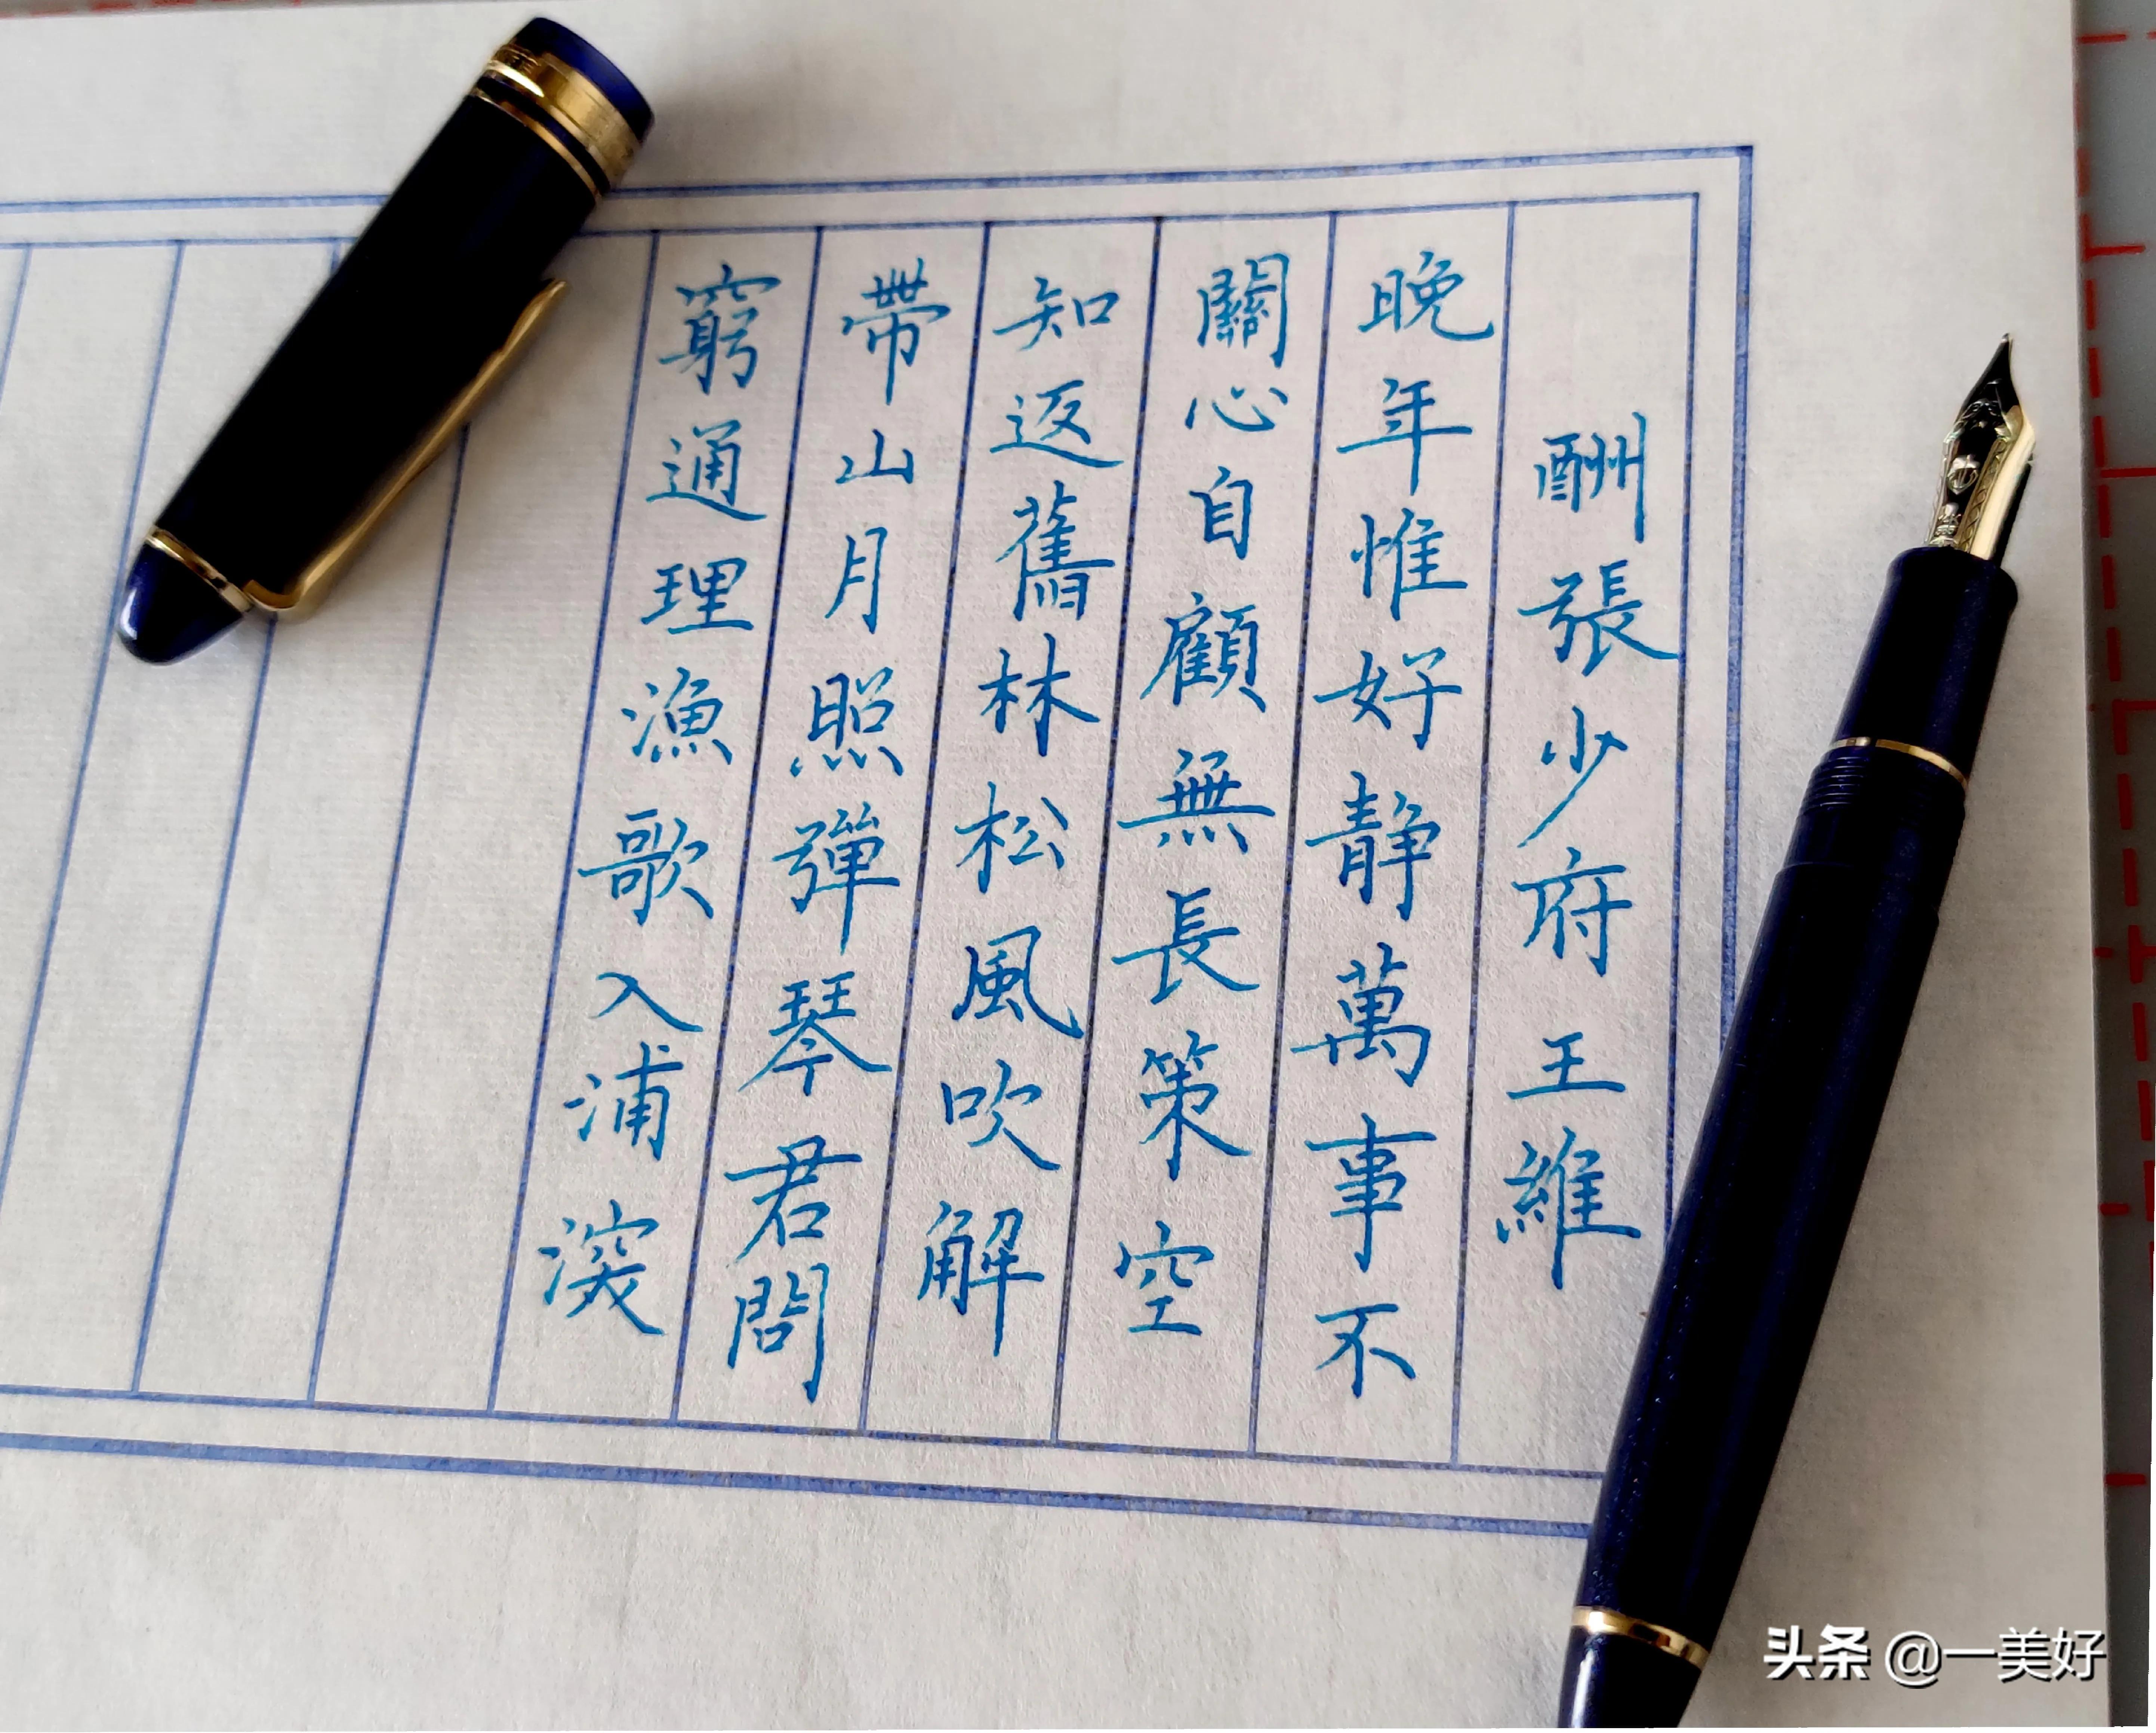 酬張少府王維
晚年惟好静萬事不
關心自顧無長策空
知返舊林松風吹解
帶山月照彈琴君問
窮通理漁歌入浦深
头条 @一美好